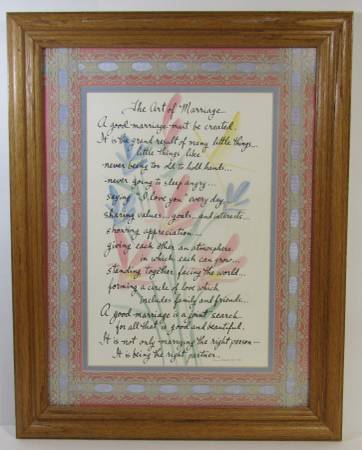 The Art of Marriage
A good marriage must be created.
It is the grand result of many little things...
little things like
never being too old to hold hands...
never going to sleep angry...
saying "I love you" every day...
sharing values... goals... and interests...
showing appreciation...
giving each other an atmosphere
in which each can grow...
standing together facing the world...
forming a circle of love which
includes family and friends...
A good marriage is a joint search
for all that is good and beautiful.
It is not only marrying the right person...
It is being the right partner.